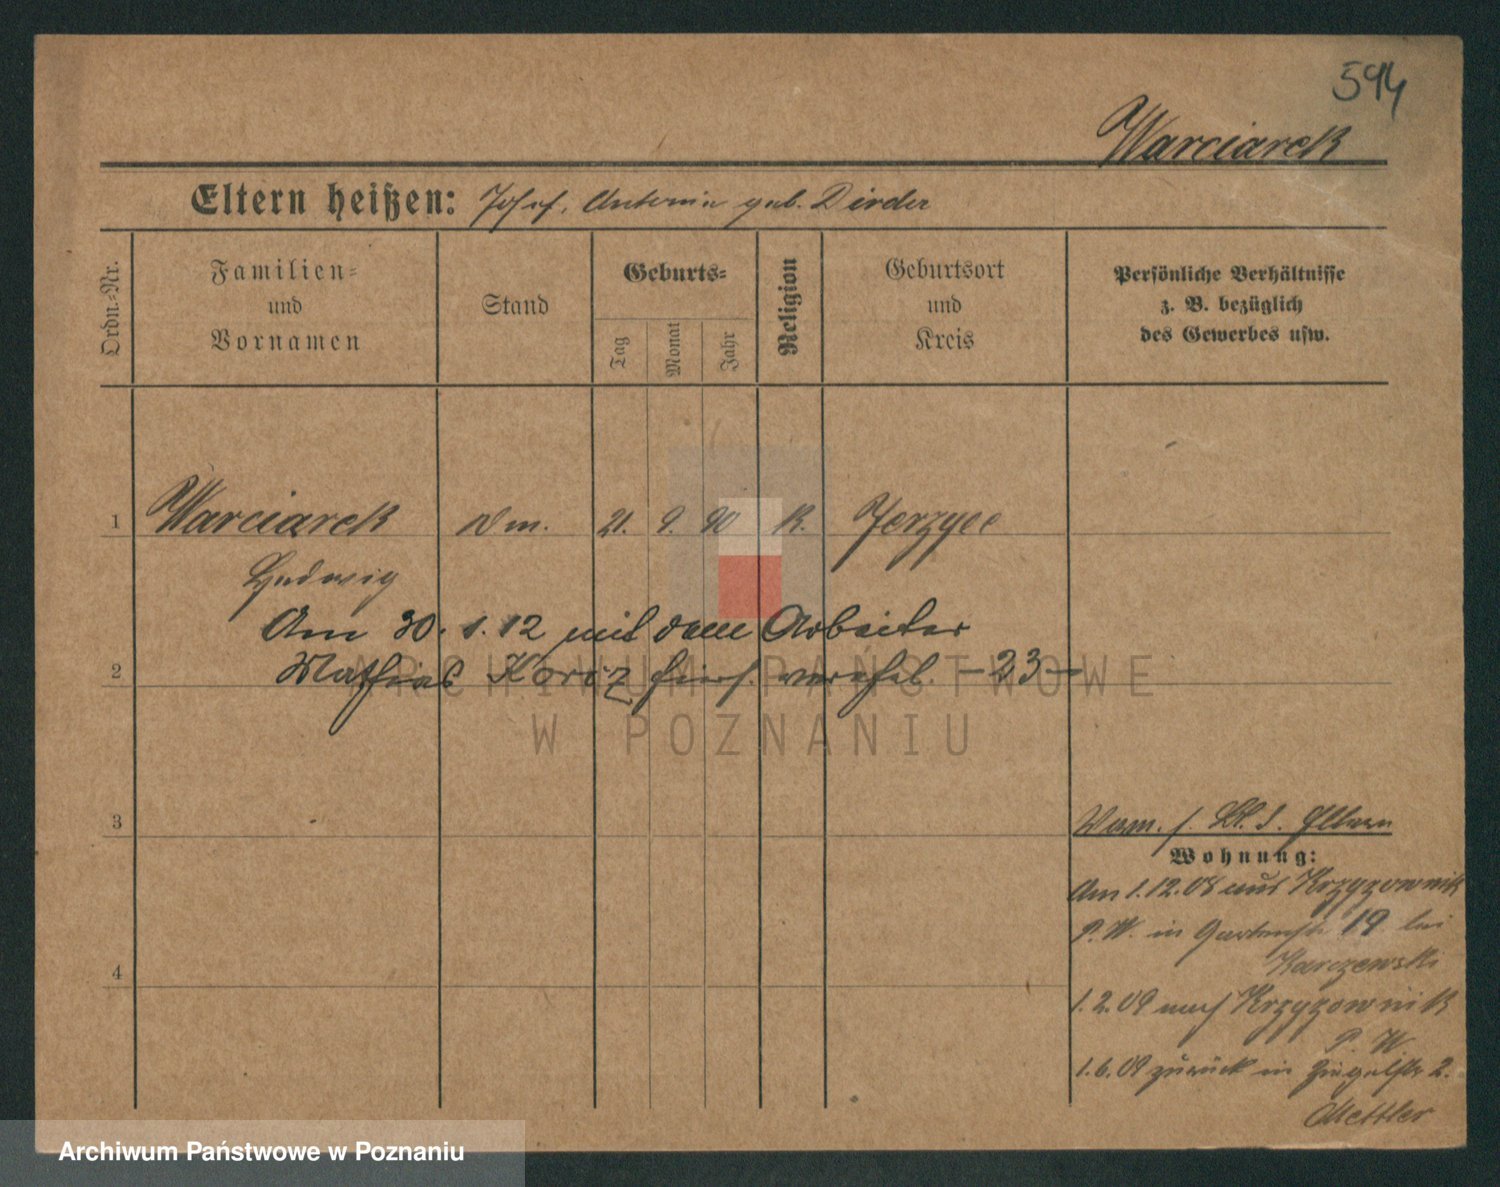 594
Warciarek
Eltern heißen: Josef, Antonie geb. Dirder
Ordn.-Nr.
Familien-
und
Vornamen
Stand
Geburts-
Tag
Monat
Jahr
Religion
Geburtsort
und
Kreis
Persönliche Verhältnisse
z. B. bezüglich
des Gewerbes usw.
1 Warciarek 21. 9. 90 K. Jerzyce
Hedwig
Am 30. 1. 12 mit dem Arbeiter
2 Mathias hier verehel. - 23 -
ARCHIWUM PAŃSTWOWE
W POZNANIU
3
Eltern
Wohnung:
Am 1.12.08 aus Krzyzownik
P. W. in Gartenstr 19 bei
4 Karczewski
1.2.09 nach Krzyzownik
P. W.
1.6.09 zurück in Ziegelstr 2.
Mettler
Archiwum Państwowe w Poznaniu